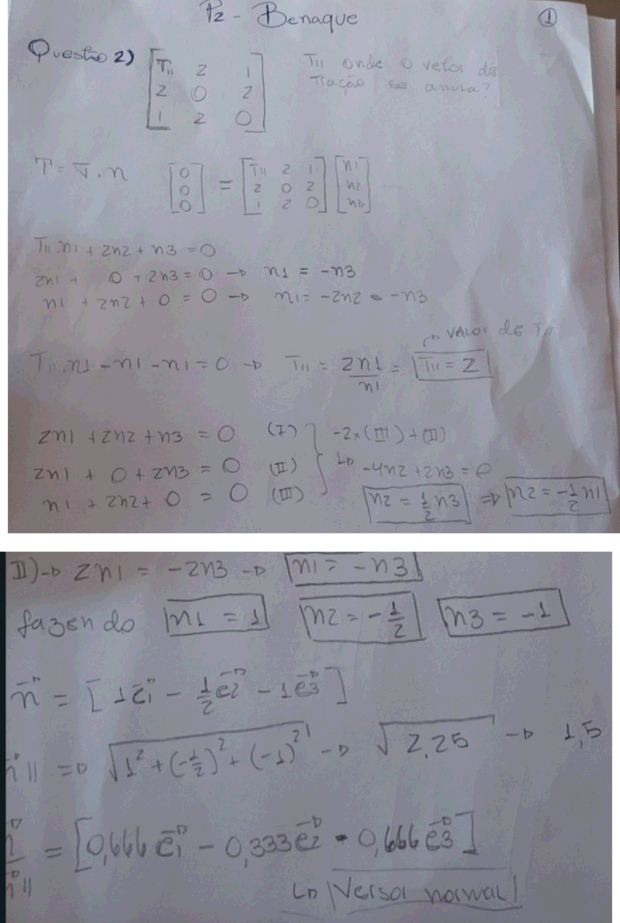 P2 - Benaque
1
Questão 2) [T11 2 1
2 0 2
1 2 0]
T11 onde o vetor de
tração se anula?
T = ∇ . n [0 0 0] = [T11 2 1
2 0 2
1 2 0] [n1 n2 n3]
T11.n1 + 2n2 + n3 = 0
2n1 + 0 + 2n3 = 0 → n1 = -n3
n1 + 2n2 + 0 = 0 → n1 = -2n2 = -n3
T11.n1 - n1 - n1 = 0 → T11 = 2n1/n1 = T11 = 2
↱ VALOR de T11
2n1 + 2n2 + n3 = 0 (I)
2n1 + 0 + 2n3 = 0 (II)
n1 + 2n2 + 0 = 0 (III)
-2x(III) + (II)
↳ -4n2 + 2n3 = 0
n2 = 1/2 n3 ⇒ n2 = -1/2 n1
II) → 2n1 = -2n3 → n1 = -n3
fazendo n1 = 1 n2 = -1/2 n3 = -1
n⃗ = [1e⃗1 - 1/2 e⃗2 - 1e⃗3]
n⃗|| ⇒ √1² + (-1/2)² + (-1)² → √2,25 → 1,5
= [0,666 e⃗1 - 0,333 e⃗2 - 0,666 e⃗3]
n⃗||
↳ Versor normal